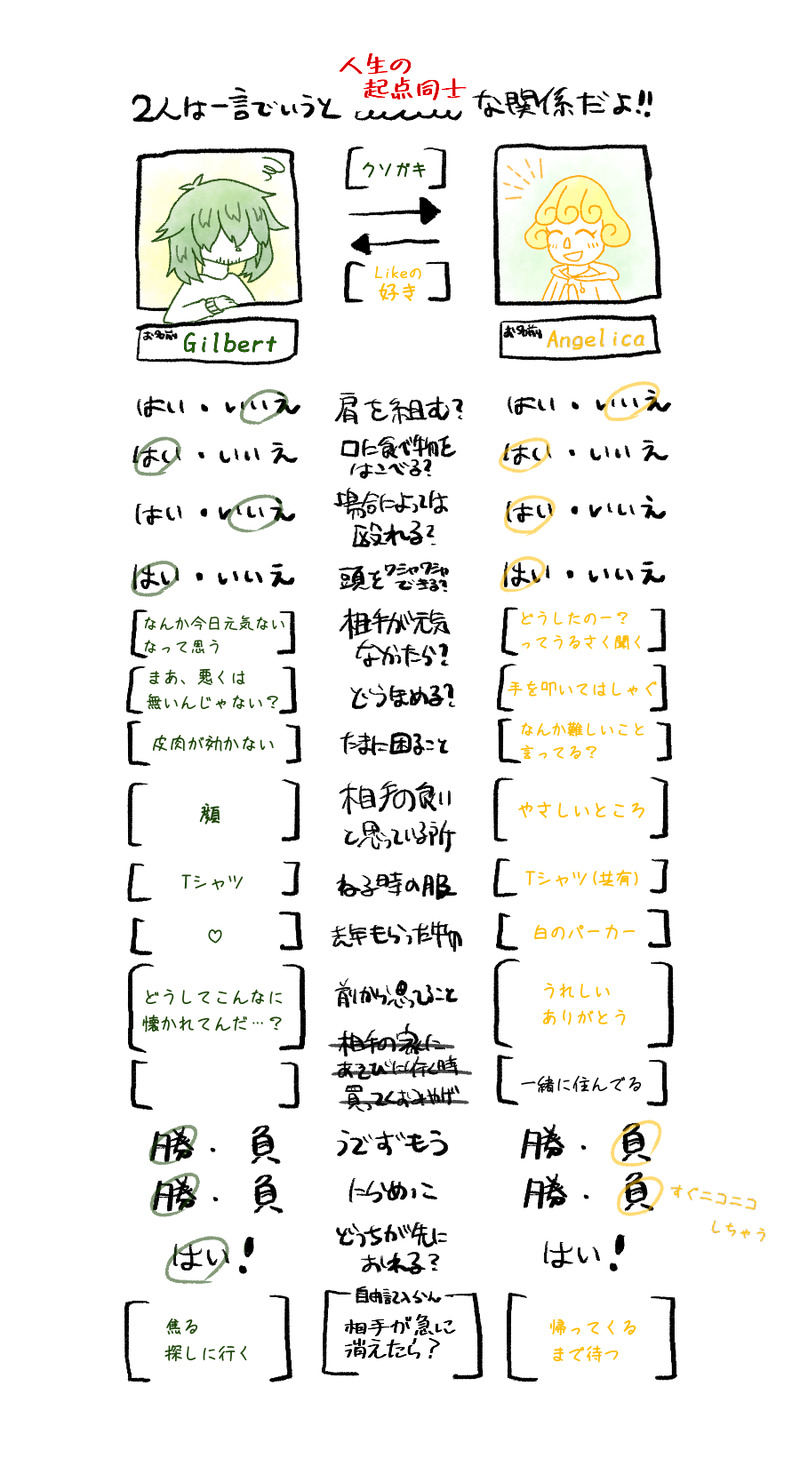 人生の
起点同士
2人は一言でいうと な関係だよ!!
クソガキ
Likeの
好き
お名前 Gilbert
お名前 Angelica
はい・いいえ 肩を組む? はい・いいえ
はい・いいえ 口に食べ物を はい・いいえ
はこべる?
はい・いいえ 場合によっては はい・いいえ
殴れる?
はい・いいえ 頭をワシャワシャ はい・いいえ
できる?
なんか今日元気ない 相手が元気 どうしたのー?
なって思う なかったら? ってうるさく聞く
まあ、悪くは どうほめる? 手を叩いてはしゃぐ
無いんじゃない?
皮肉が効かない たまに困ること なんか難しいこと
言ってる?
顔 相手の良い やさしいところ
と思っている所
Tシャツ ねる時の服 Tシャツ(共有)
♡ 去年もらった物 白のパーカー
どうしてこんなに 前から思ってること うれしい
懐かれてんだ…? ありがとう
相手の家に
あそびに行く時 一緒に住んでる
買ってくおみやげ
勝・負 うでずもう 勝・負
勝・負 にらめっこ 勝・負 すぐニコニコ
しちゃう
はい! どっちが先に はい!
おれる?
自由記入らん
焦る 相手が急に 帰ってくる
探しに行く 消えたら? まで待つ